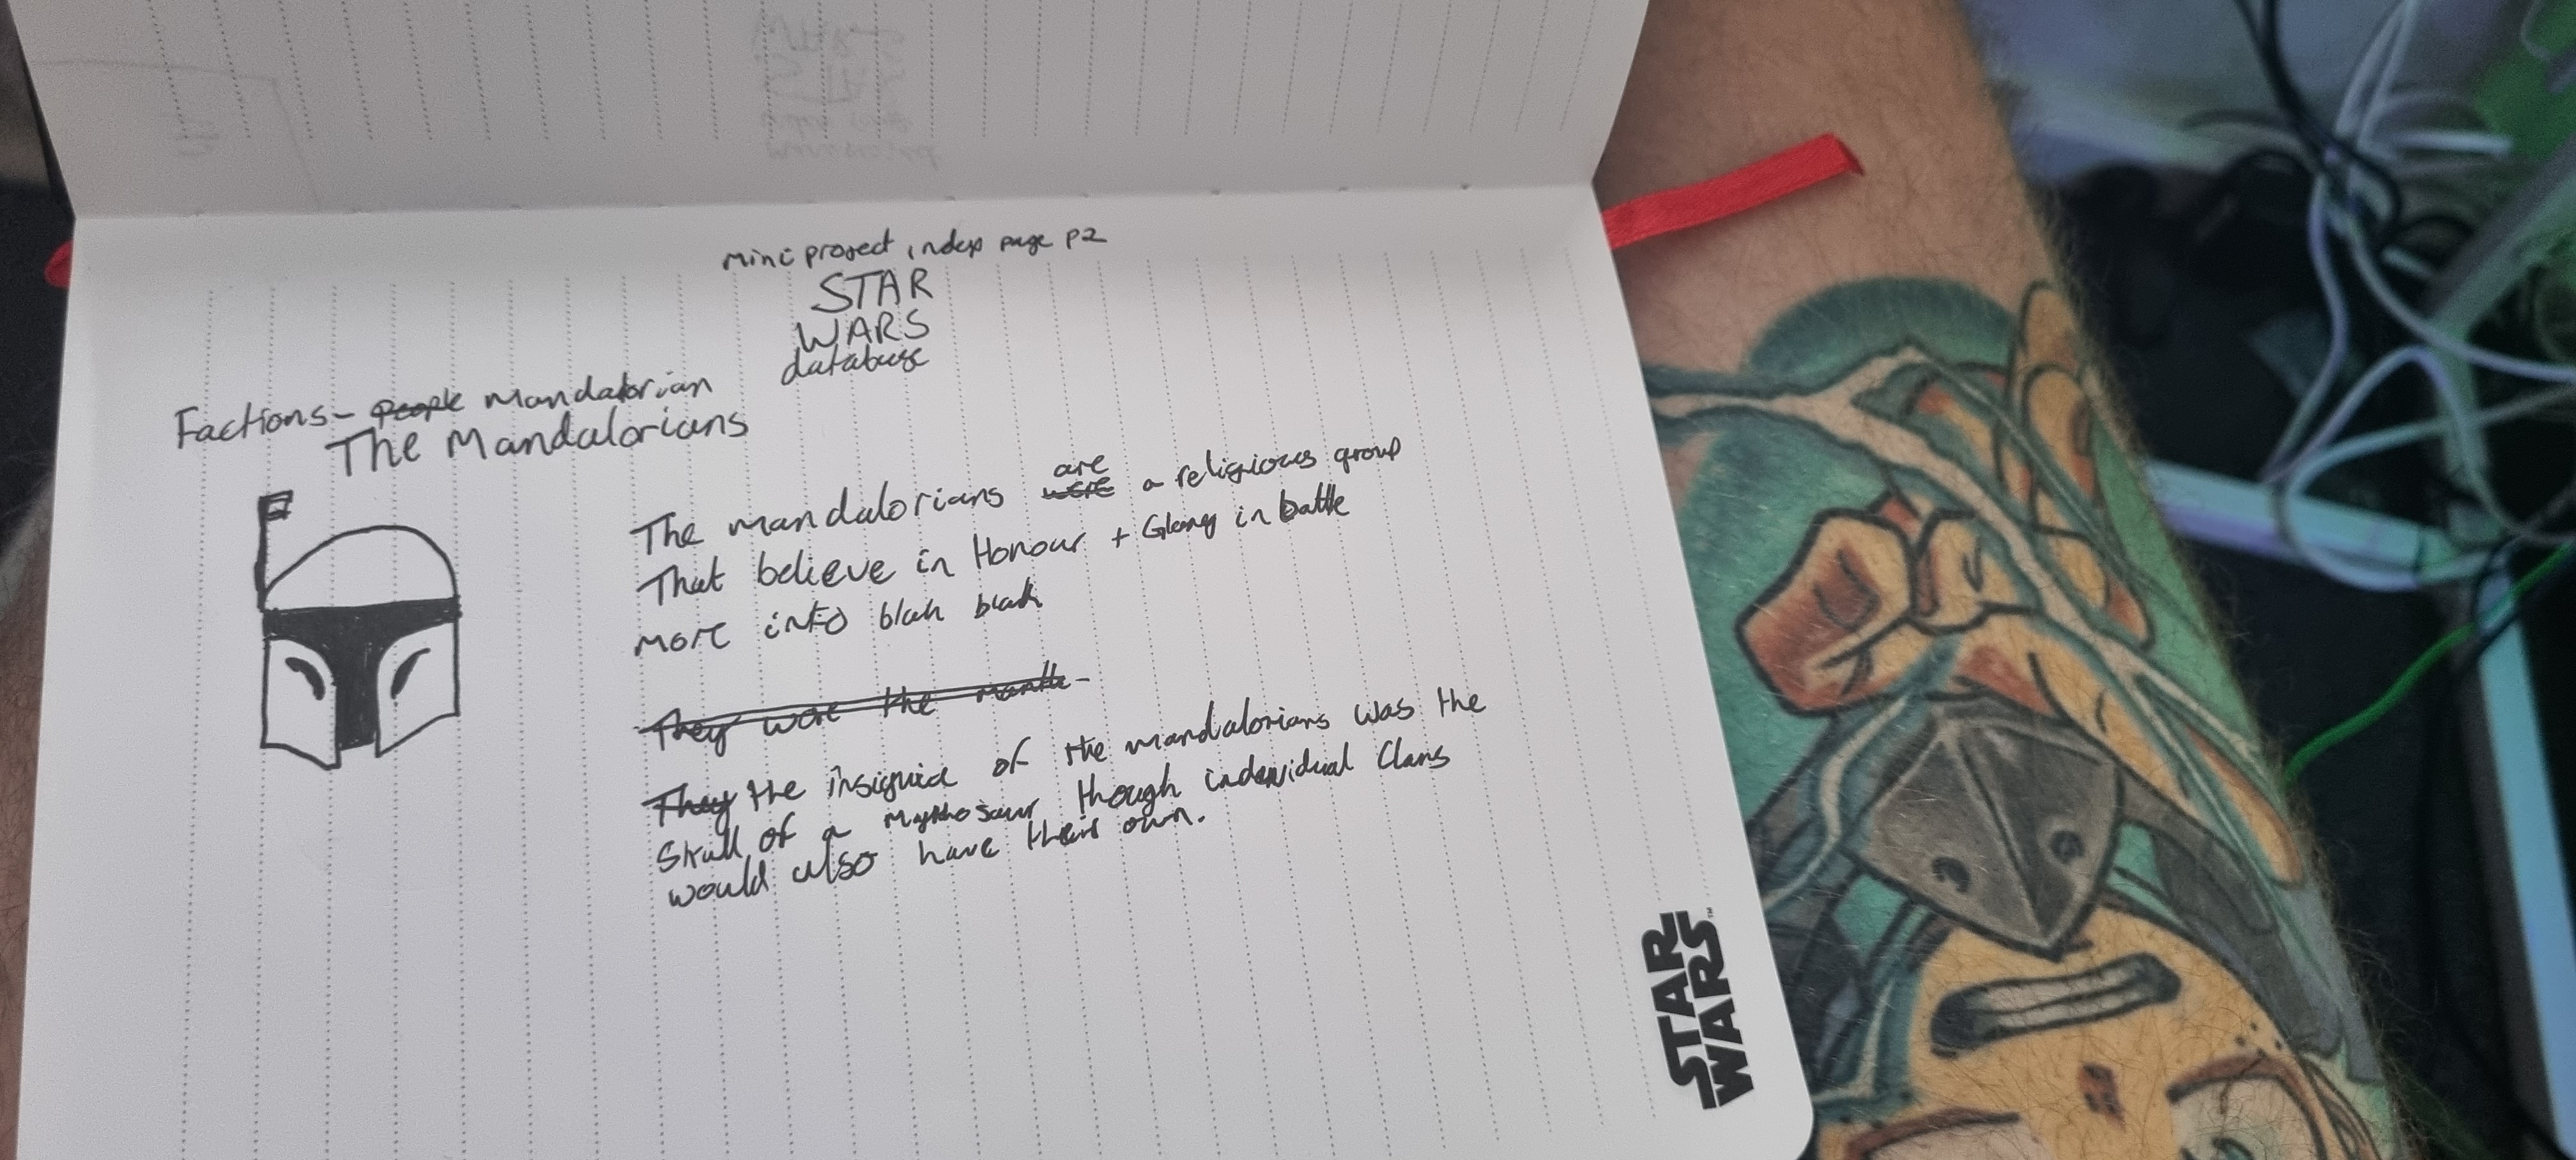 mini project index page p2
STAR
WARS
database
Factions - people mandalorian
The Mandalorians
The mandalorians were are a religious group
That believe in Honour + Glory in battle
more info blah blah
They were the mantle-
They the insignia of the mandalorians was the
Skull of a Mythosaur though individual Clans
would also have their own.
STAR
WARS™